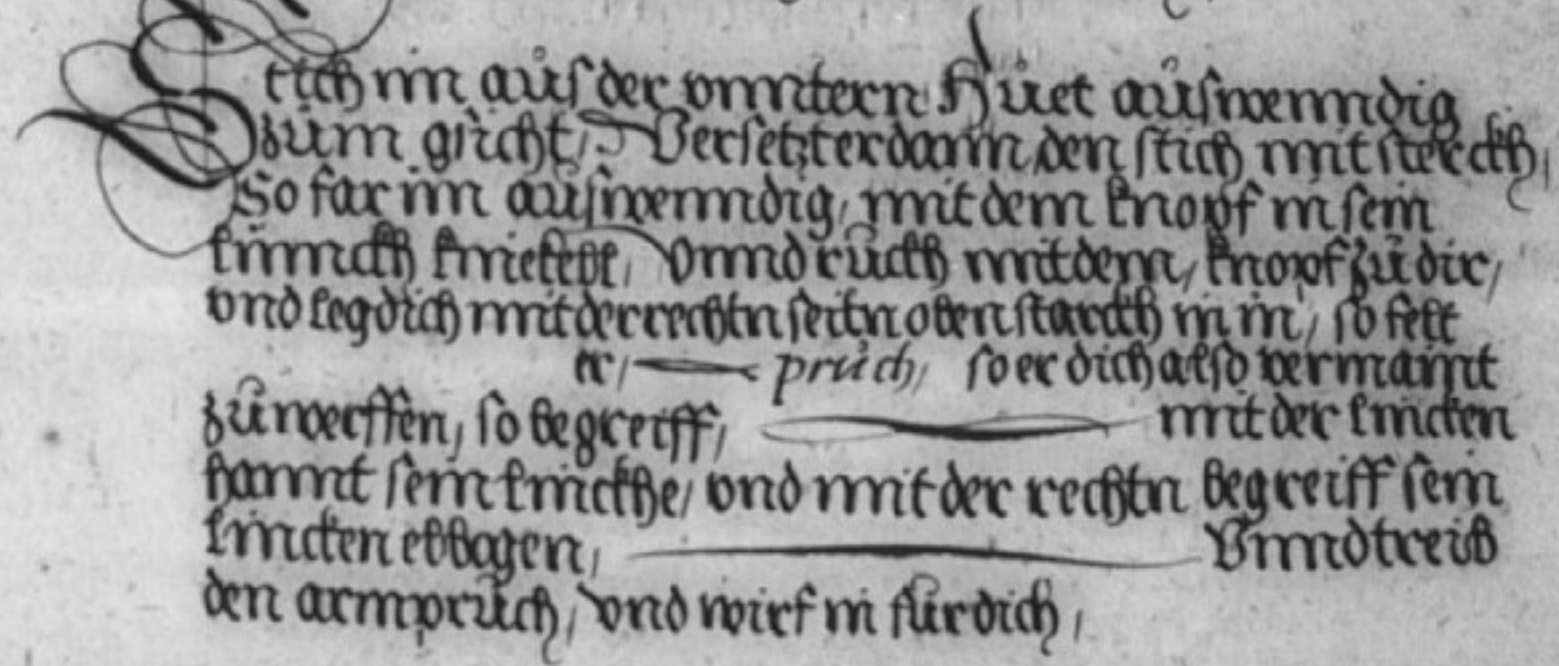 Stich im aus der unntern Huet auswenndig
zum gsicht, Versetzt er dann, den stich mit sterckh,
So far im auswenndig, mit dem knopf in sein
linnckh kniekell, Unnd ruckh mit dem, knopf zu dir,
und leg dich mit der rechtn seitn oben starckh in in, so felt
er, pruch, so er dich also vermaint
zu werffen, so begreiff, mit der lincken
hannt sein linckhe, und mit der rechtn begreiff sein
lincken elbogen, Unnd treib
den armpruch, und wirf in für dich,